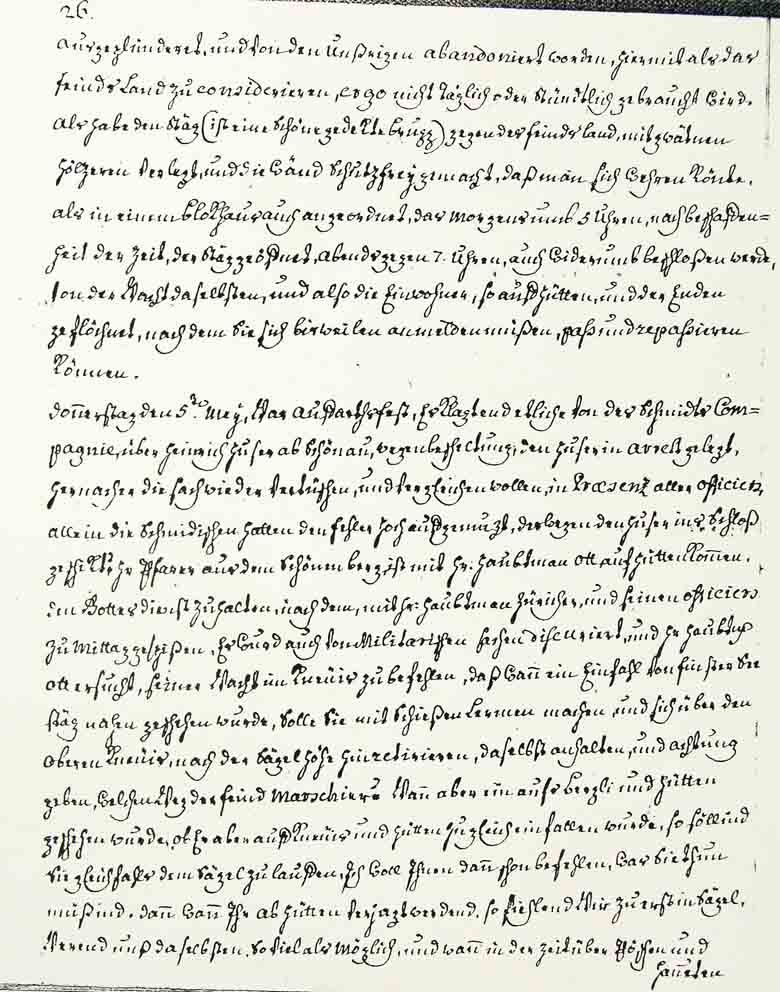 26.
ausgeplünderet, und von den Unßrigen abandoniert worden, hiermit als das
feinds Land zu considerieren, ergo nicht täglich oder stündtlich gebraucht wird.
Als habe den Stäg (ist eine schöne gedekte brugg) gegen des feinds land, mit
hölzeren verlegt, und die wänd schutzfrey gemacht, daß man sich wehren könte,
als in einem blokhaus, auch angeordnet, das morgens umb 5 Uhren, nach beschaffen=
heit der Zeit, der Stäg geöffnet, abends gegen 7. Uhren, auch widerumb beschloßen werde,
von der Wacht daselbsten, und also die Einwohner, so auf Hütten, und der Enden
geflöchnet, nach dem sie sich bisweilen anmelden müßen, paß und repaßieren
können.
Donnerstag den 5ten Mey, war Auffarthsfest, Es klagtend etliche von des Schmidts Com=
pagnie, über Heinrich Huser ab Schönau, wegen bescheltung, den Huser in Arrest gelegt,
hernacher die sach wieder vertüschen, und vergleichen wollen, in Præsenz aller Officiers,
allein die Schmidischen hatten den fehler hoch aufgemutzt, deswegen den Huser ins Schloß
geschikt, Hr Pfarer aus dem Schönenberg, ist mit Hr. Haubtman Ott auf Hütten kommen,
den Gottesdienst zu halten, nach dem, mit Hr. Haubtman Züricher, und seinen officiers
zu Mittag gespißen, Es wurd auch von Militarischen sachen discurriert, und Hr Haubtm
Ott ersucht, seiner Wacht im zu befehlen, daß wann ein Einfahl von Finstersee
stäg nahen geschehen wurde, solle sie mit schießen Lermen machen, und sich über den
oberen nach der Sägel höhe hin retirieren, daselbst anhalten, und achtung
geben, welchen Weg der feind Marschiere. Wann aber ein aufs bergli und Hütten
geschehen wurde, ob Er aber auf und Hütten zugleich einfallen wurde, so söllind
Sie gleichfahls dem Sägel zu lauffen, Ich woll Ihnen dann schon befehlen, was sie thun
müßind. Dann wann Ihr ab Hütten verjagt werdend, so fiehlend Wir zu erst in Sägel,
Werend unß daselbsten, so viel als möglich, und wann in der Zeit über und